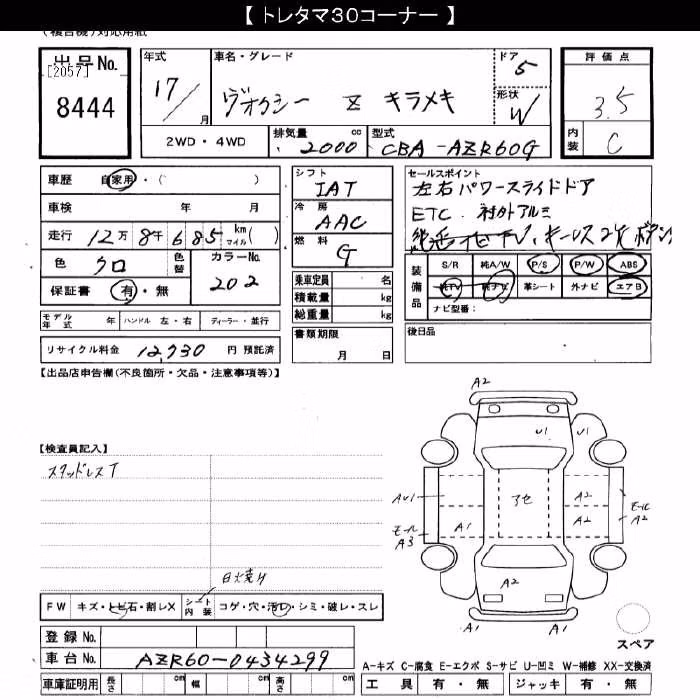 【 トレタマ30コーナー 】
(複合機)対応用紙
出品No.
[2057]
8444
年式
17/
月
車名・グレード
ヴォクシー Z キラメキ
ドア
5
形状
W
評価点
3.5
内装
C
2WD・4WD
排気量
2000
cc
型式
CBA-AZR60G
車歴
自家用・( )
車検
年 月
走行
12万8千685 km(マイル)( )
色
クロ
色替
カラーNo.
202
保証書
有・無
シフト
IAT
冷房
AAC
燃料
G
乗車定員
名
積載量
kg
総重量
kg
セールスポイント
左右パワースライドドア
ETC.社外アルミ
キーレス2ケ
装備品
S/R 純A/W P/S P/W ABS
純TV 純ナビ 革シート 外ナビ エアB
ナビ型番:
モデル年式
年
ハンドル 左・右
ディーラー・並行
書類期限
月 日
後日品
リサイクル料金
12,730
円 預託済
【出品店申告欄(不良箇所・欠品・注意事項等)】
A2
U1
U1
【検査員記入】
スタッドレスT
AU1
アセ
A2
モール
A2
モール
A3
A1
A2
日火焼け
A2
FW
キズ・トビ石・割レX
シート内装
コゲ・穴・汚レ・シミ・破レ・スレ
A1
A1
スペア
登録No.
車台No.
AZR60-0434299
A-キズ C-腐食 E-エクボ S-サビ U-凹ミ W-補修 XX-交換済
車庫証明用
長さ
cm
幅
cm
高さ
cm
工具
有・無
ジャッキ
有・無